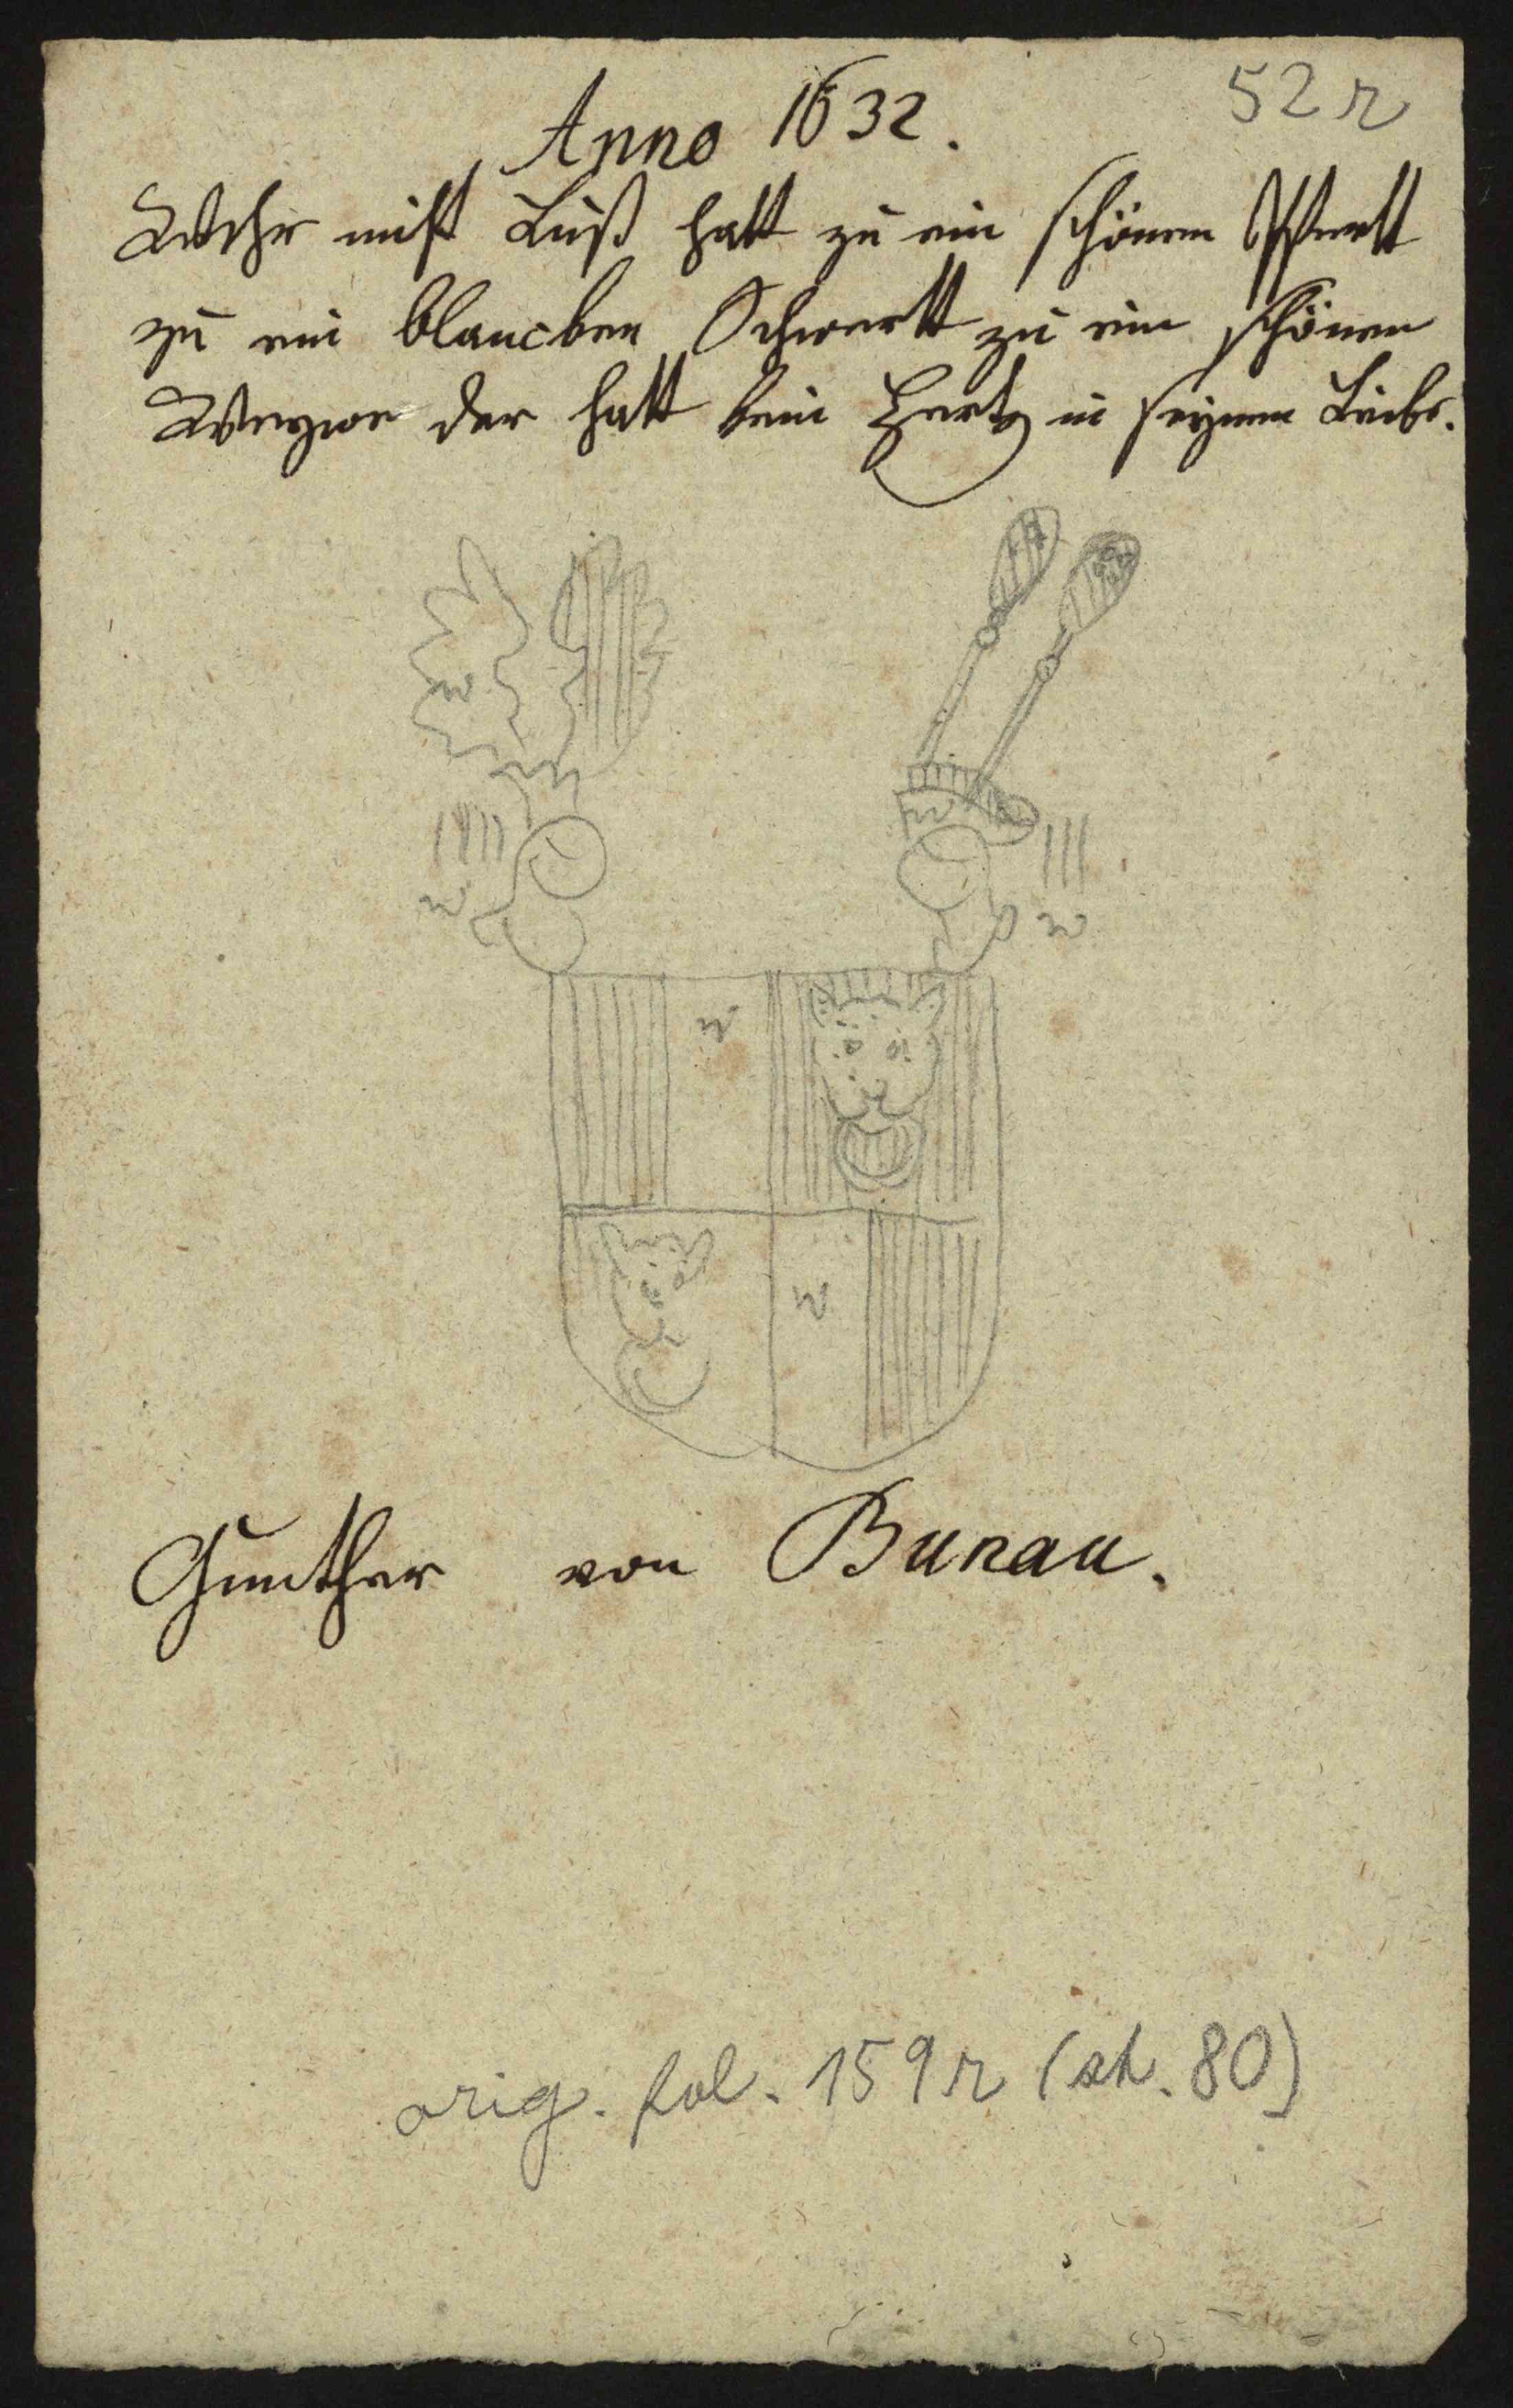 52 r
Anno 1632.
Wehr nift Luß hatt zu ein schönen Pfertt
zu ein blancken Schwertt zu ein schönen
der hatt kein Hertz in seynen Leibe.
w
w
w
w
w
w
Gunther von Bunau.
orig. fol. 159 r (st. 80)